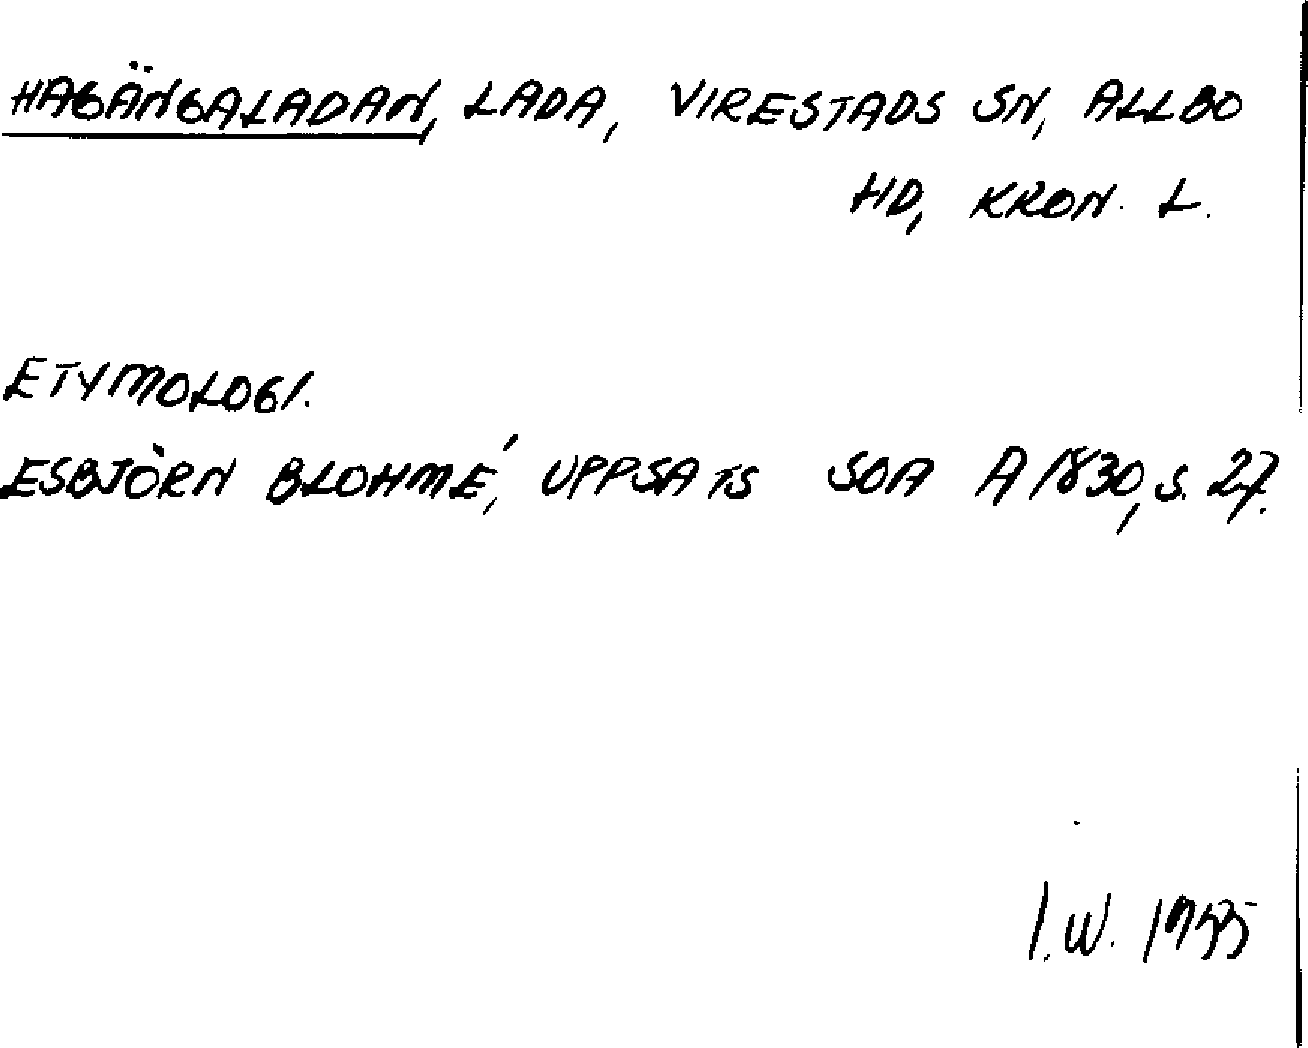 HAGÄNGALADAN, LADA, VIRESTADS SN, ALLBO
HD, KRON. L.
ETYMOLOGI.
ESBJÖRN BLOHMÉ, UPPSATS SOA A 1830, S. 27.
I.W.